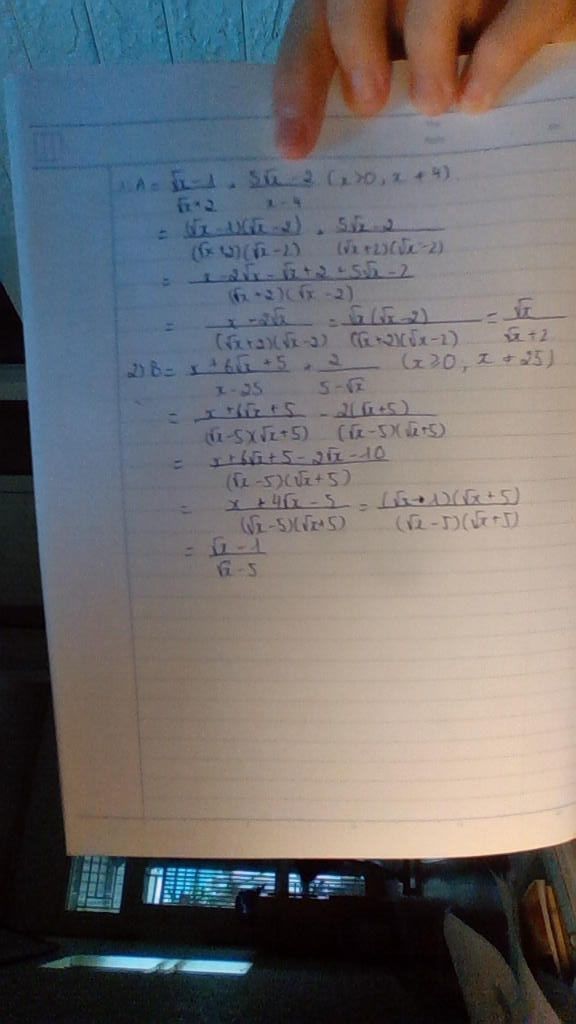 1. A = (√x - 1)/(√x + 2) + (5√x - 2)/(x - 4) (x ≥ 0, x ≠ 4)
= ((√x - 1)(√x - 2))/((√x + 2)(√x - 2)) + (5√x - 2)/((√x + 2)(√x - 2))
= (x - 2√x - √x + 2 + 5√x - 2)/((√x + 2)(√x - 2))
= (x - 2√x)/((√x + 2)(√x - 2)) = (√x(√x - 2))/((√x + 2)(√x - 2)) = √x/(√x + 2)
2) B = (x + 6√x + 5)/(x - 25) + 2/(5 - √x) (x ≥ 0, x ≠ 25)
= (x + 6√x + 5)/((√x - 5)(√x + 5)) - (2(√x + 5))/((√x - 5)(√x + 5))
= (x + 6√x + 5 - 2√x - 10)/((√x - 5)(√x + 5))
= (x + 4√x - 5)/((√x - 5)(√x + 5)) = ((√x - 1)(√x + 5))/((√x - 5)(√x + 5))
= (√x - 1)/(√x - 5)